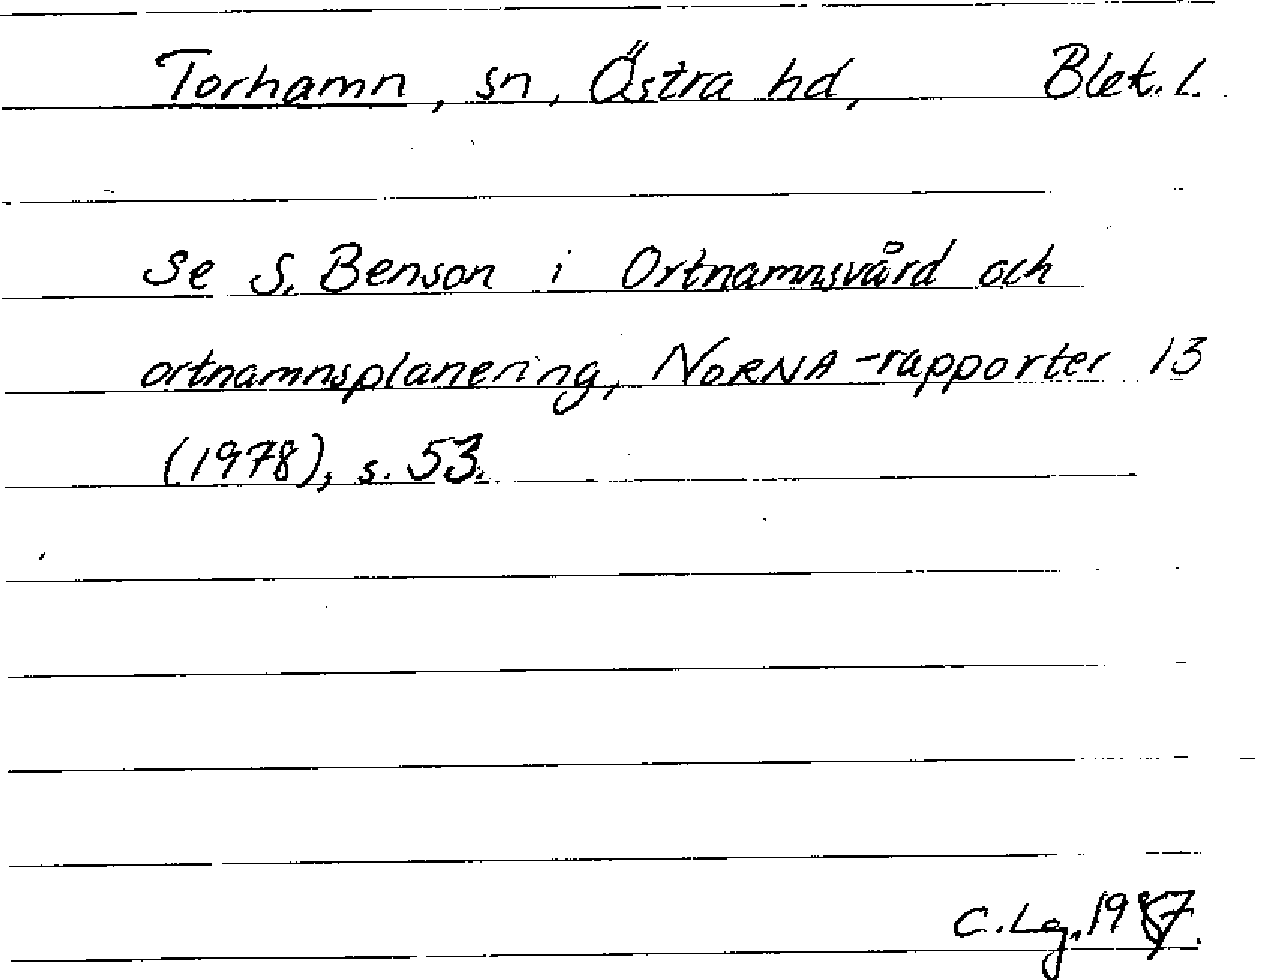 Torhamn, sn, Östra hd, Blek. l.
Se S. Benson i Ortnamnsvård och
ortnamnsplanering, NORNA-rapporter 13
(1978), s. 53.
C. Lg. 1987.